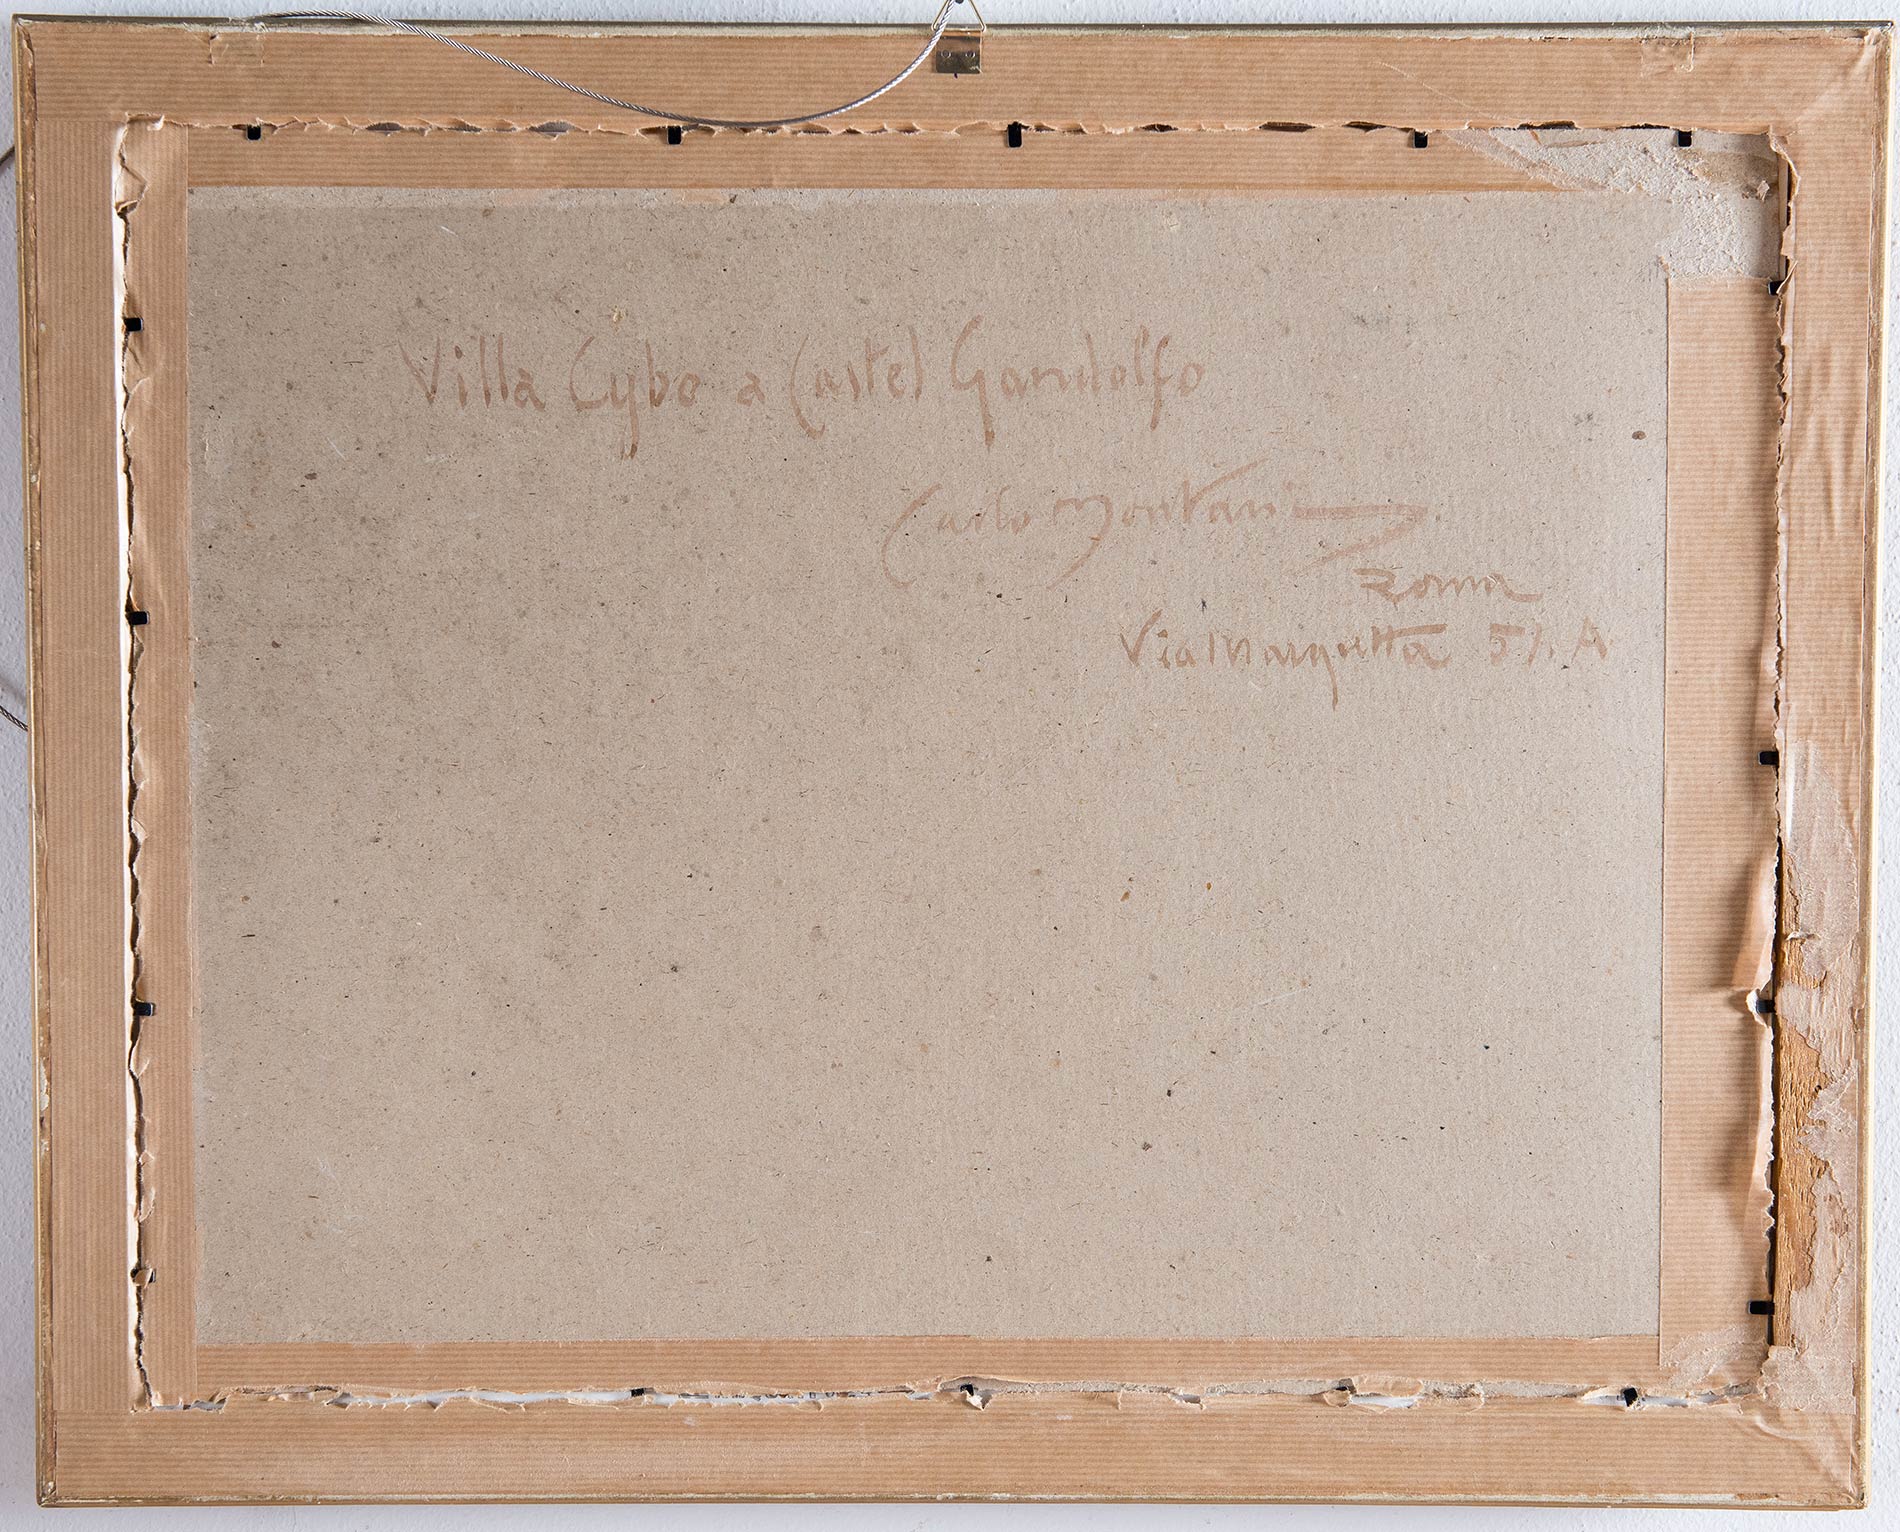 Villa Cybo a Castel Gandolfo
Carlo Montani
Roma
Via Margutta 51. A